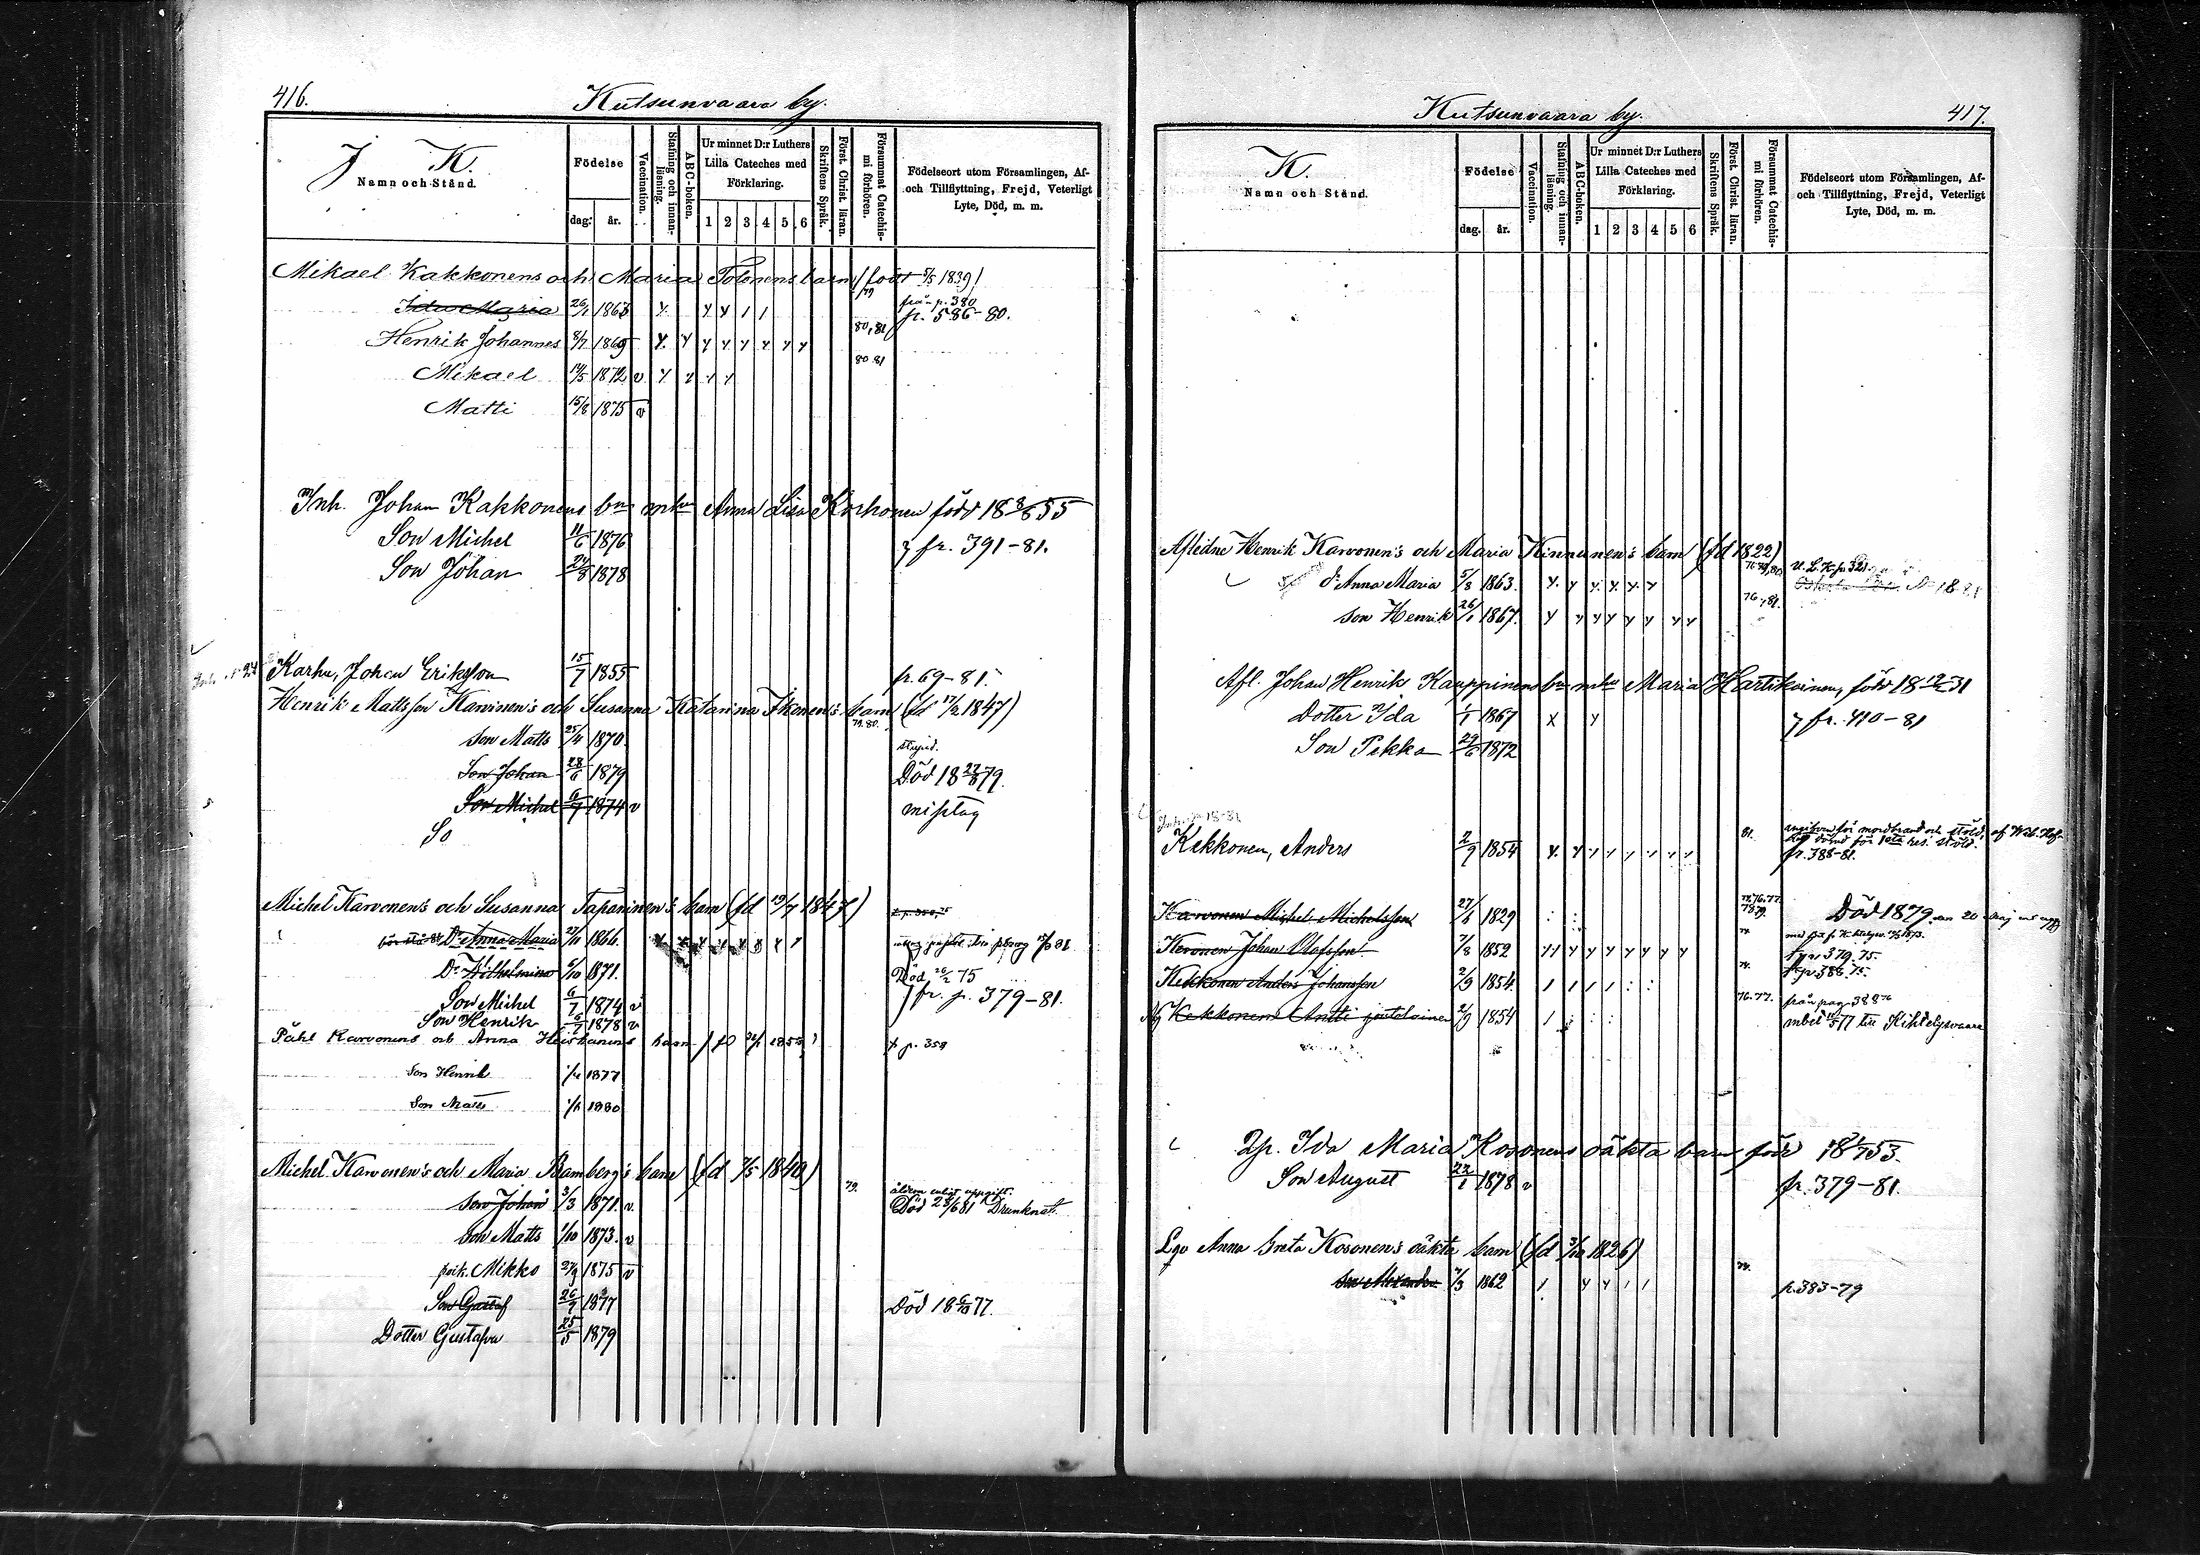 416.
Kutsunvaara by.
J K.
Namn och Stånd.
Födelse
dag. år.
Vaccination.
Stafning och innanläsning.
ABC-boken.
Ur minnet D:r Luthers
Lilla Cateches med
Förklaring.
1 2 3 4 5 6
Skriftens Språk.
Först. Christ. läran.
Försummat Catechismi förhören.
Födelseort utom Församlingen, Af-
och Tillflyttning, Frejd, Veterligt
Lyte, Död, m. m.
Mikael Kakkonens och Maria Tolonens barn (född 5/5 1839)
Maria 1863 från p. 380
p. 586-80.
Henrik Johannes 8/7 1869 80,81
Mikael 1872 v 80 81
Matti 15/8 1875 v
Inh. Johan Kakkonens bn mhu Anna Lisa Korhonen född 18 3/8 55
Son Michel 11/6 1876 fr. 391-81.
Son Johan 24/8 1878
Karhu, Johan Eriksson 15/7 1855 fr. 69-81.
Henrik Mattsson Karvinen's och Susanna Katarina Ikonen's barn (fd 17/2 1847)
79.80.
Son Matts 25/4 1870 stupid.
Son Johan 28/6 1879 Död 18 22/8 79.
Son Michel 6/7 1874 v misstag
So
Michel Karvonen's och Susanna Tapaninen's barn (fd 19/7 1847)
Dr Anna Maria 27/11 1866.
Dr Wilhelmina 6/10 1871. Död 26/2 75
Son Michel 6/7 1874 v fr. p. 379-81.
Son Henrik 6/7 1878 v
Påhl Karvonens och Anna Heiskanens barn p. 359
Son Henrik 1877
Son Matts 1880
Michel Karvonen's och Maria Bamberg's barn (fd 7/5 1840)
Son Johan 3/3 1871. v 79. åldern enligt uppgift.
Död 23/6 81 Drunknat.
Son Matts 1/10 1873. v
Mikko 27/9 1875 v
Son Gustaf 26/7 1877 Död 18 6/10 77.
Dotter Gustava 25/5 1879
Kutsunvaara by.
417.
K.
Namn och Stånd.
Födelse
dag. år.
Vaccination.
Stafning och innanläsning.
ABC-boken.
Ur minnet D:r Luthers
Lilla Cateches med
Förklaring.
1 2 3 4 5 6
Skriftens Språk.
Först. Christ. läran.
Försummat Catechismi förhören.
Födelseort utom Församlingen, Af-
och Tillflyttning, Frejd, Veterligt
Lyte, Död, m. m.
Aflidne Henrik Karvonen's och Maria Kinnunen's barn (fd 1822)
dr Anna Maria 5/8 1863.
son Henrik 26/1 1867.
Afl. Johan Henrik Kauppinens bn mhu Maria Hartikainen, född 18 12/2 31
Dotter Ida 1/1 1867 fr. 410-81
Son Pekka 29/6 1872
Kekkonen, Anders 2/9 1854 81. fr. 388-81.
Karvonen Michel Michelsson 27/6 1829 Död 1879
Karonen Johan Olofsson 7/8 1852 p. 379. 75.
Kekkonen Anders Johansson 2/9 1854. p. 388. 75.
Kekkonen Antti 2/9 1854 76.77. från pag 388
till Kihtelysvaara
Ida Maria Kosonens oäkta barn född 18 53.
Son August 22/1 1878 v fr. 379-81.
Anna Greta Kosonen's oäkta barn (fd 3/10 1826)
Son Alexander 7/3 1862 p. 383-79